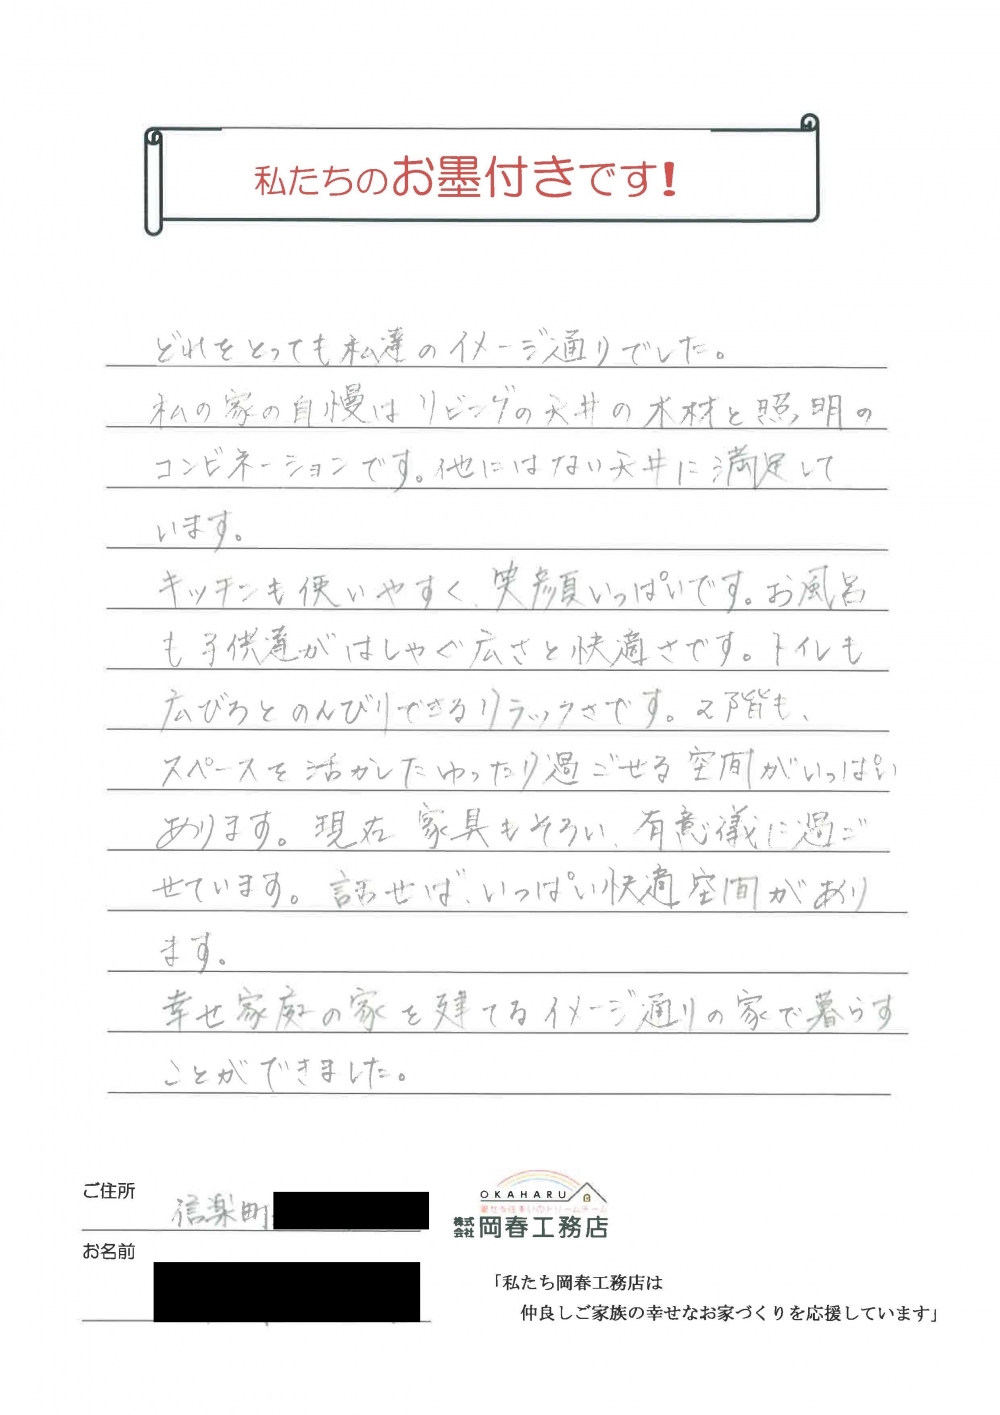 私たちのお墨付きです!
どれをとっても私達のイメージ通りでした。
私の家の自慢はリビングの天井の木材と照明の
コンビネーションです。他にはない天井に満足して
います。
キッチンも使いやすく、笑顔いっぱいです。お風呂
も子供達がはしゃぐ広さと快適さです。トイレも
広びろとのんびりできるリラックスさです。2階も、
スペースを活かしたゆったり過ごせる空間がいっぱい
あります。現在家具もそろい、有意儀に過ご
せています。話せば、いっぱい快適空間があり
ます。
幸せ家庭の家を建てるイメージ通りの家で暮らす
ことができました。
ご住所
信楽町
お名前
OKAHARU
幸せな住まいのドリームチーム
株式会社 岡春工務店
「私たち岡春工務店は
仲良しご家族の幸せなお家づくりを応援しています」